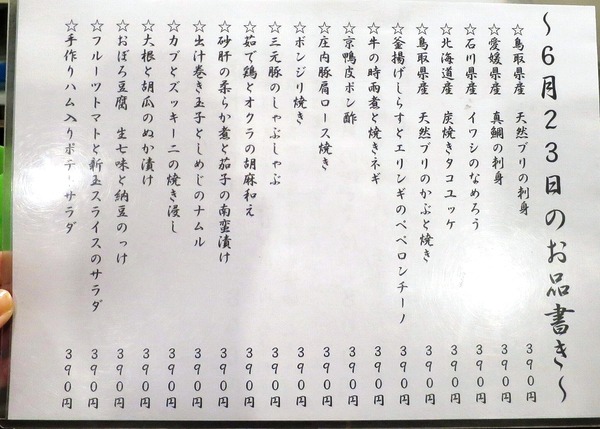 ～６月２３日のお品書き～
☆鳥取県産　天然ブリの刺身　３９０円
☆愛媛県産　真鯛の刺身　３９０円
☆石川県産　イワシのなめろう　３９０円
☆北海道産　炭焼きタコユッケ　３９０円
☆鳥取県産　天然ブリのかぶと焼き　３９０円
☆釜揚げしらすとエリンギのペペロンチーノ　３９０円
☆牛の時雨煮と焼きネギ　３９０円
☆京鴨皮ポン酢　３９０円
☆庄内豚肩ロース焼き　３９０円
☆ボンジリ焼き　３９０円
☆三元豚のしゃぶしゃぶ　３９０円
☆茹で鶏とオクラの胡麻和え　３９０円
☆砂肝の柔らか煮と茄子の南蛮漬け　３９０円
☆出汁巻き玉子としめじのナムル　３９０円
☆カブとズッキーニの焼き浸し　３９０円
☆大根と胡瓜のぬか漬け　３９０円
☆おぼろ豆腐　生七味と納豆のっけ　３９０円
☆フルーツトマトと新玉スライスのサラダ　３９０円
☆手作りハム入りポテトサラダ　３９０円